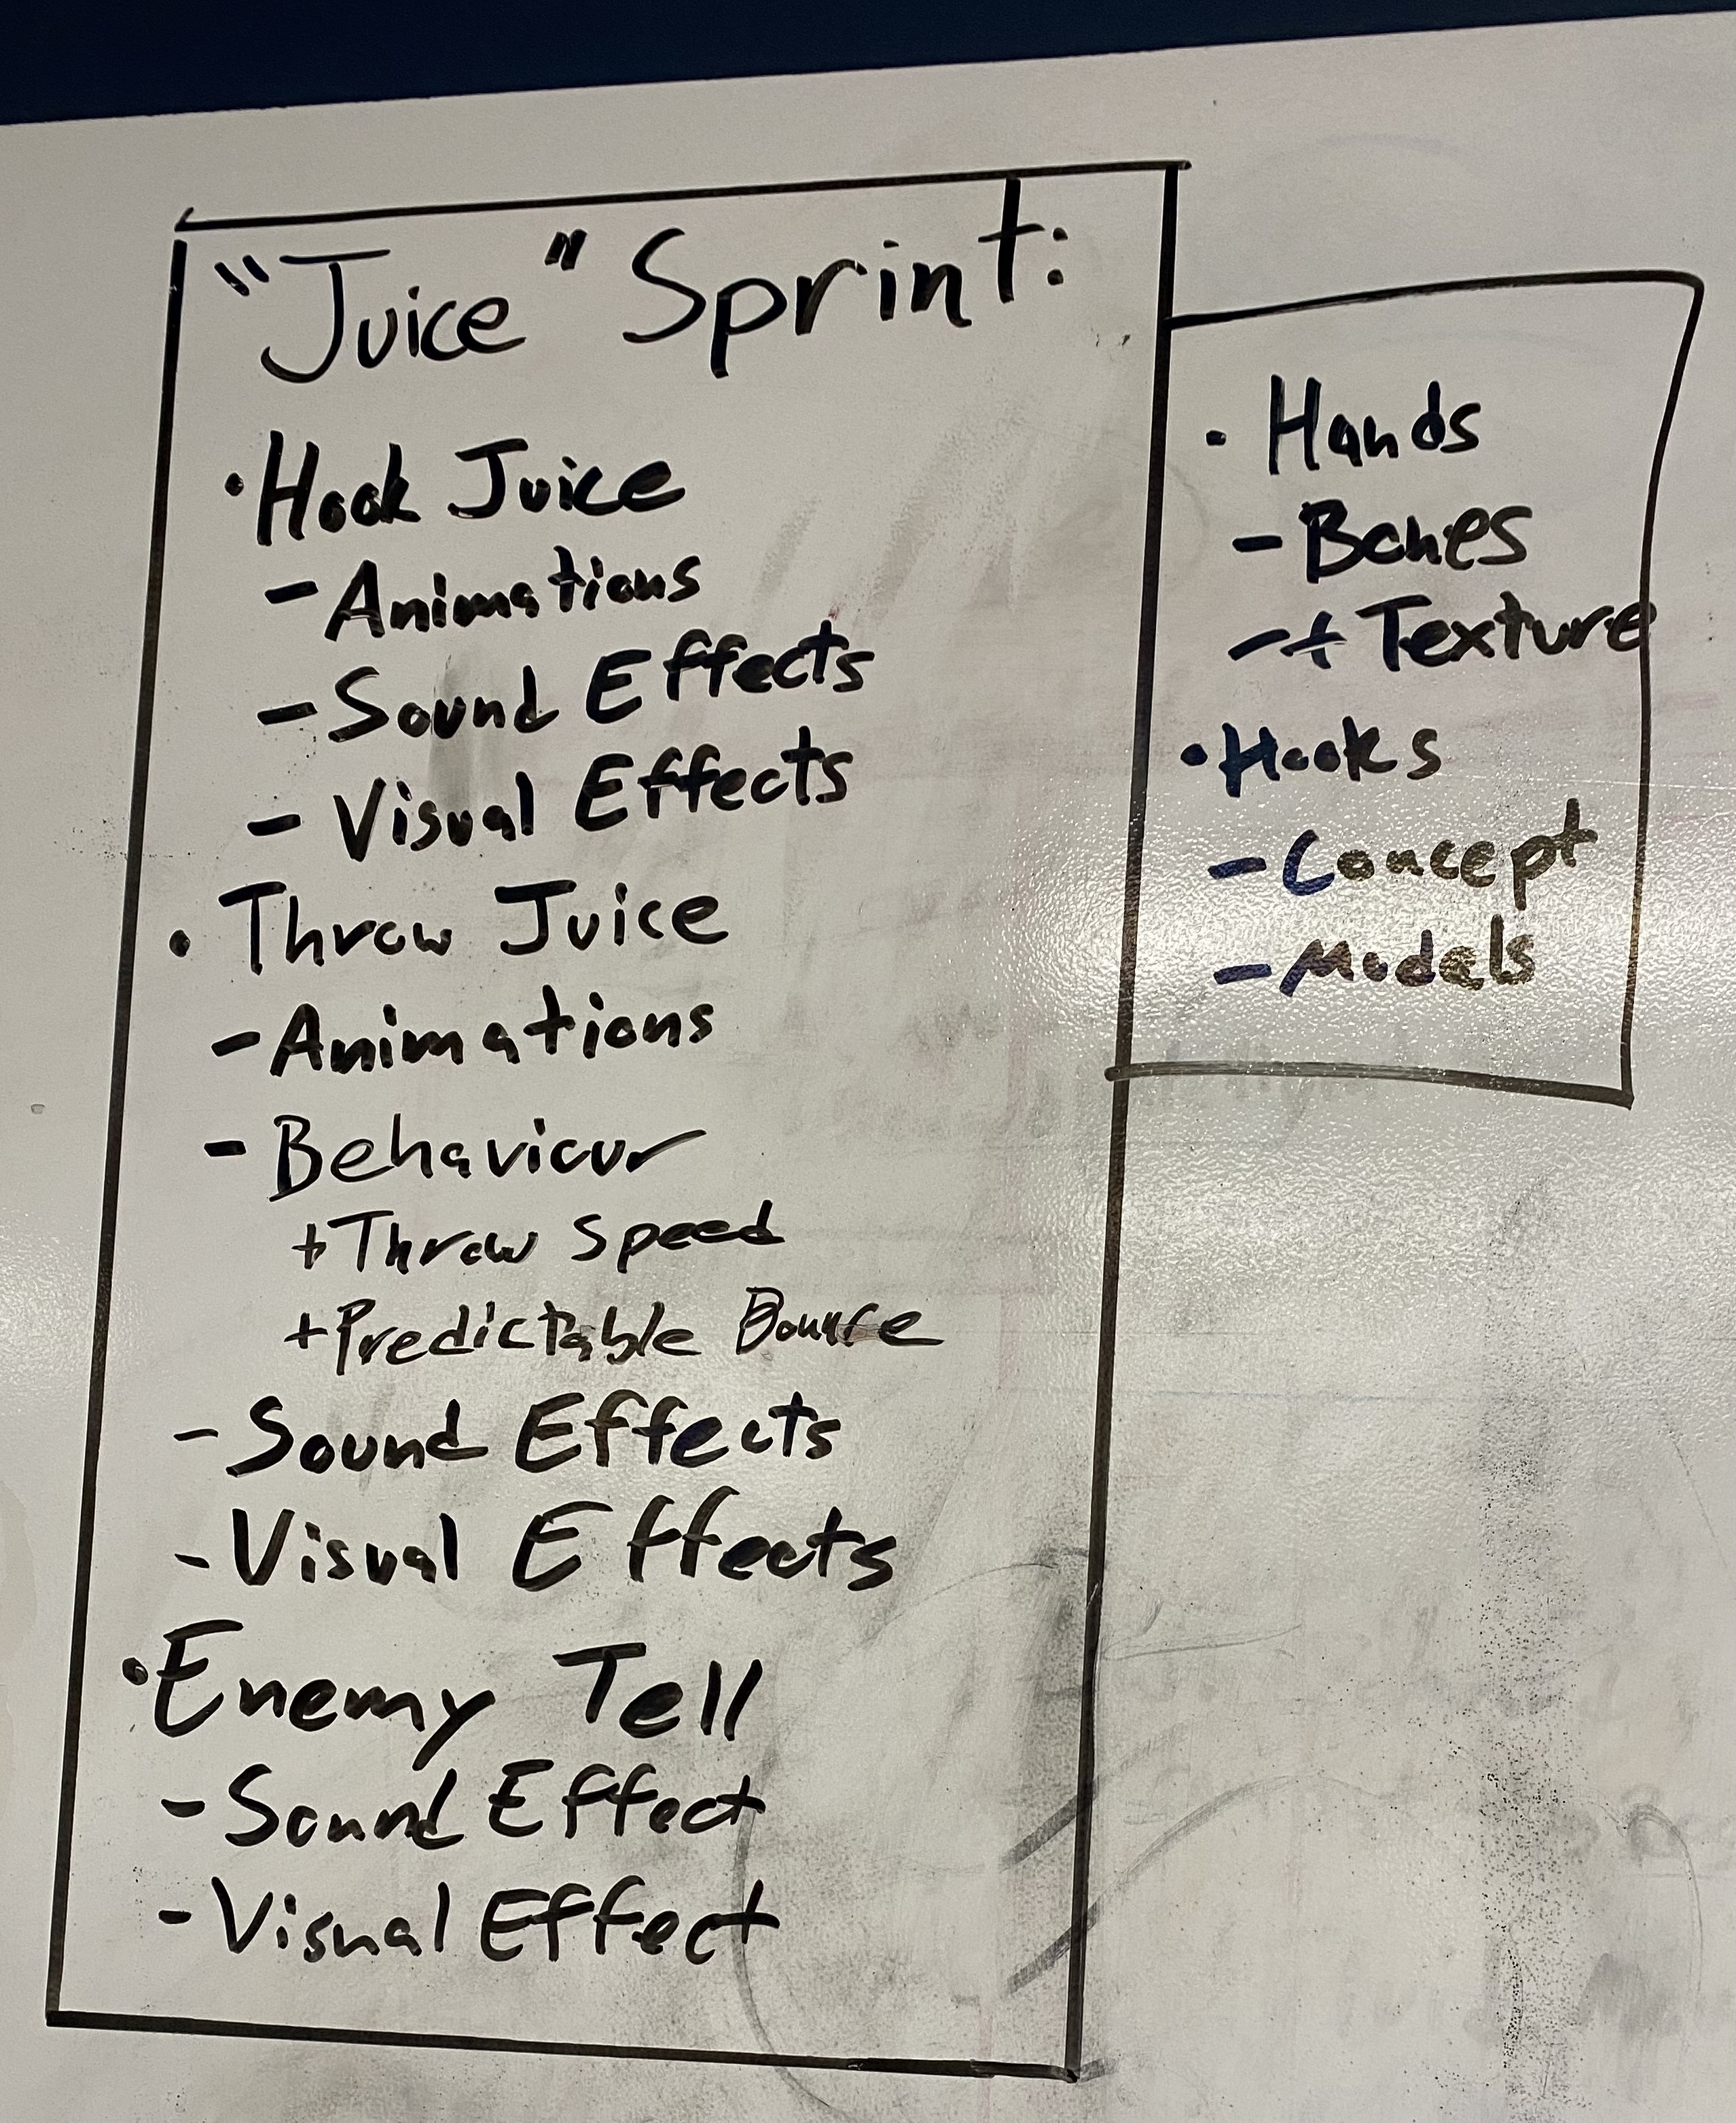 "Juice" Sprint:
• Hook Juice
- Animations
- Sound Effects
- Visual Effects
• Throw Juice
- Animations
- Behaviour
+ Throw Speed
+ Predictable Bounce
- Sound Effects
- Visual Effects
• Enemy Tell
- Sound Effect
- Visual Effect
• Hands
- Bones
- + Texture
• Hooks
- Concept
- Models